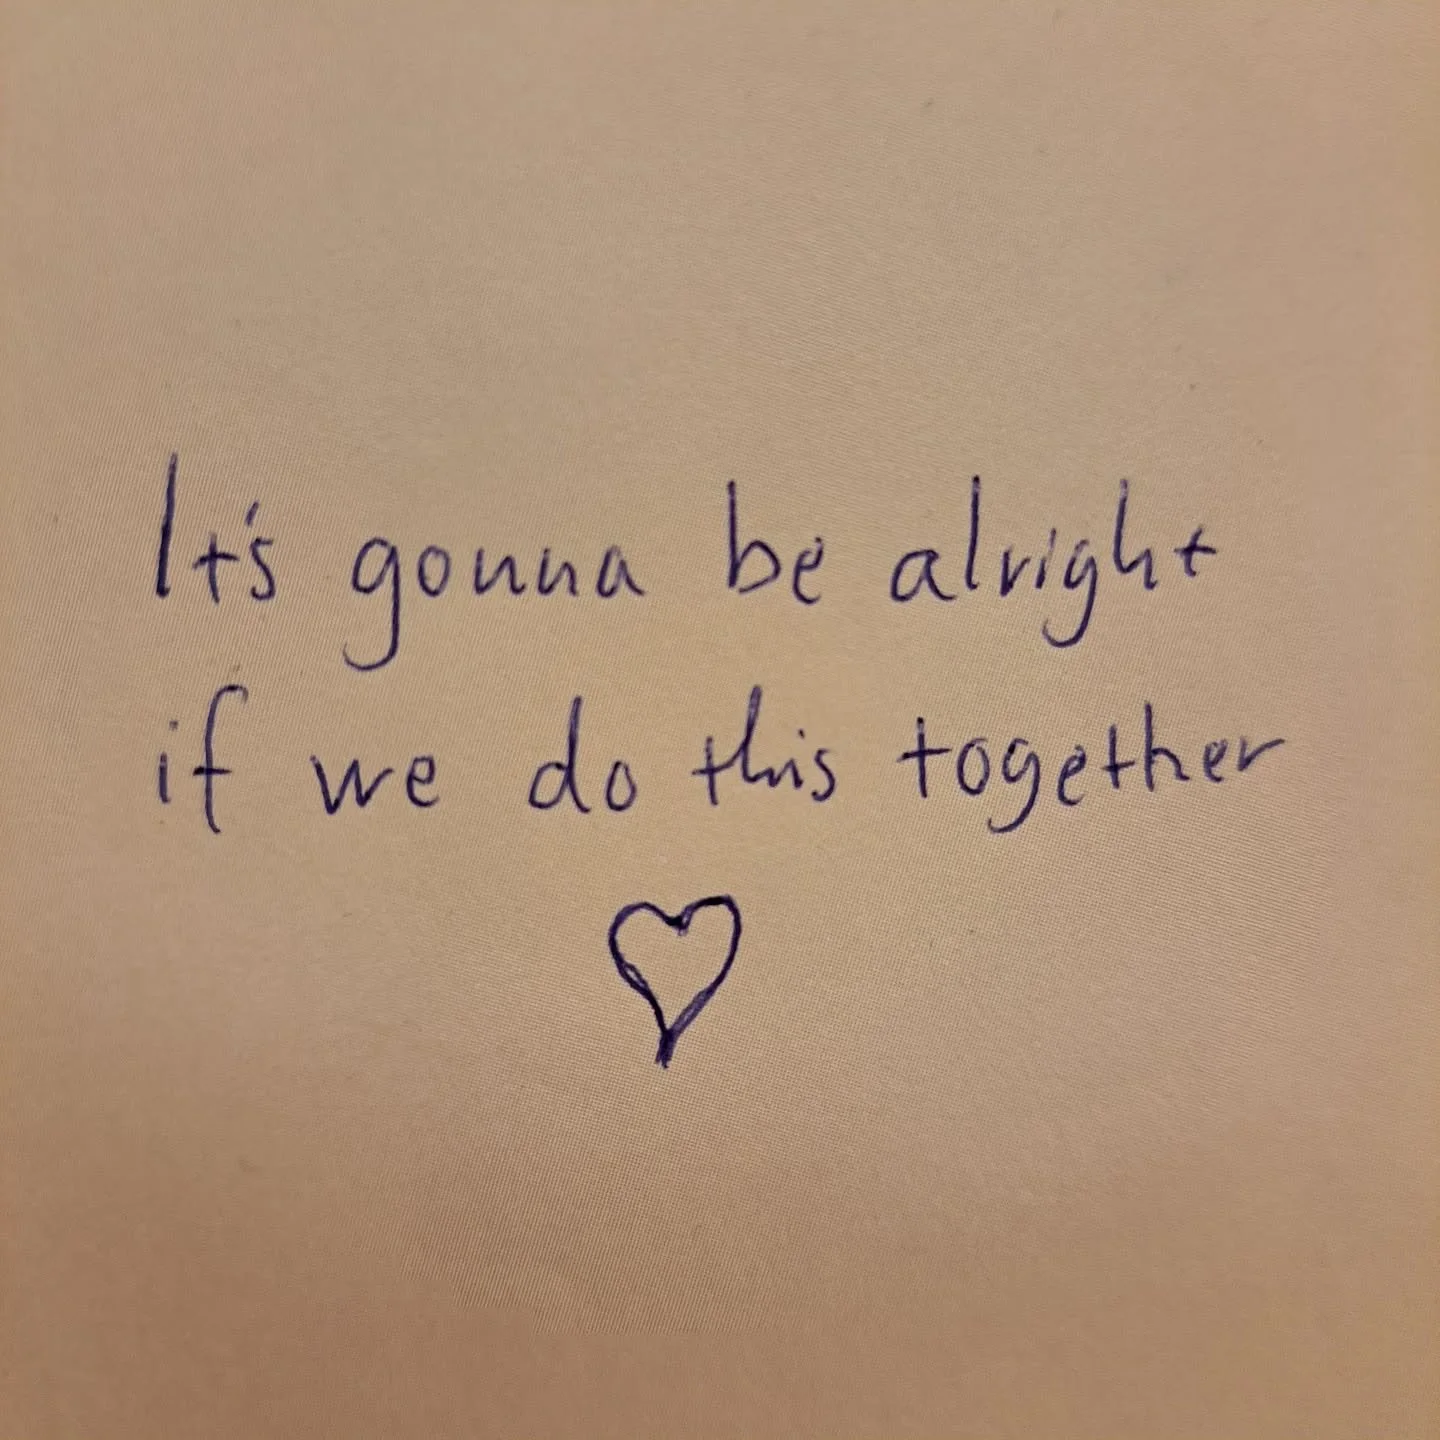 It's gonna be alright
if we do this together